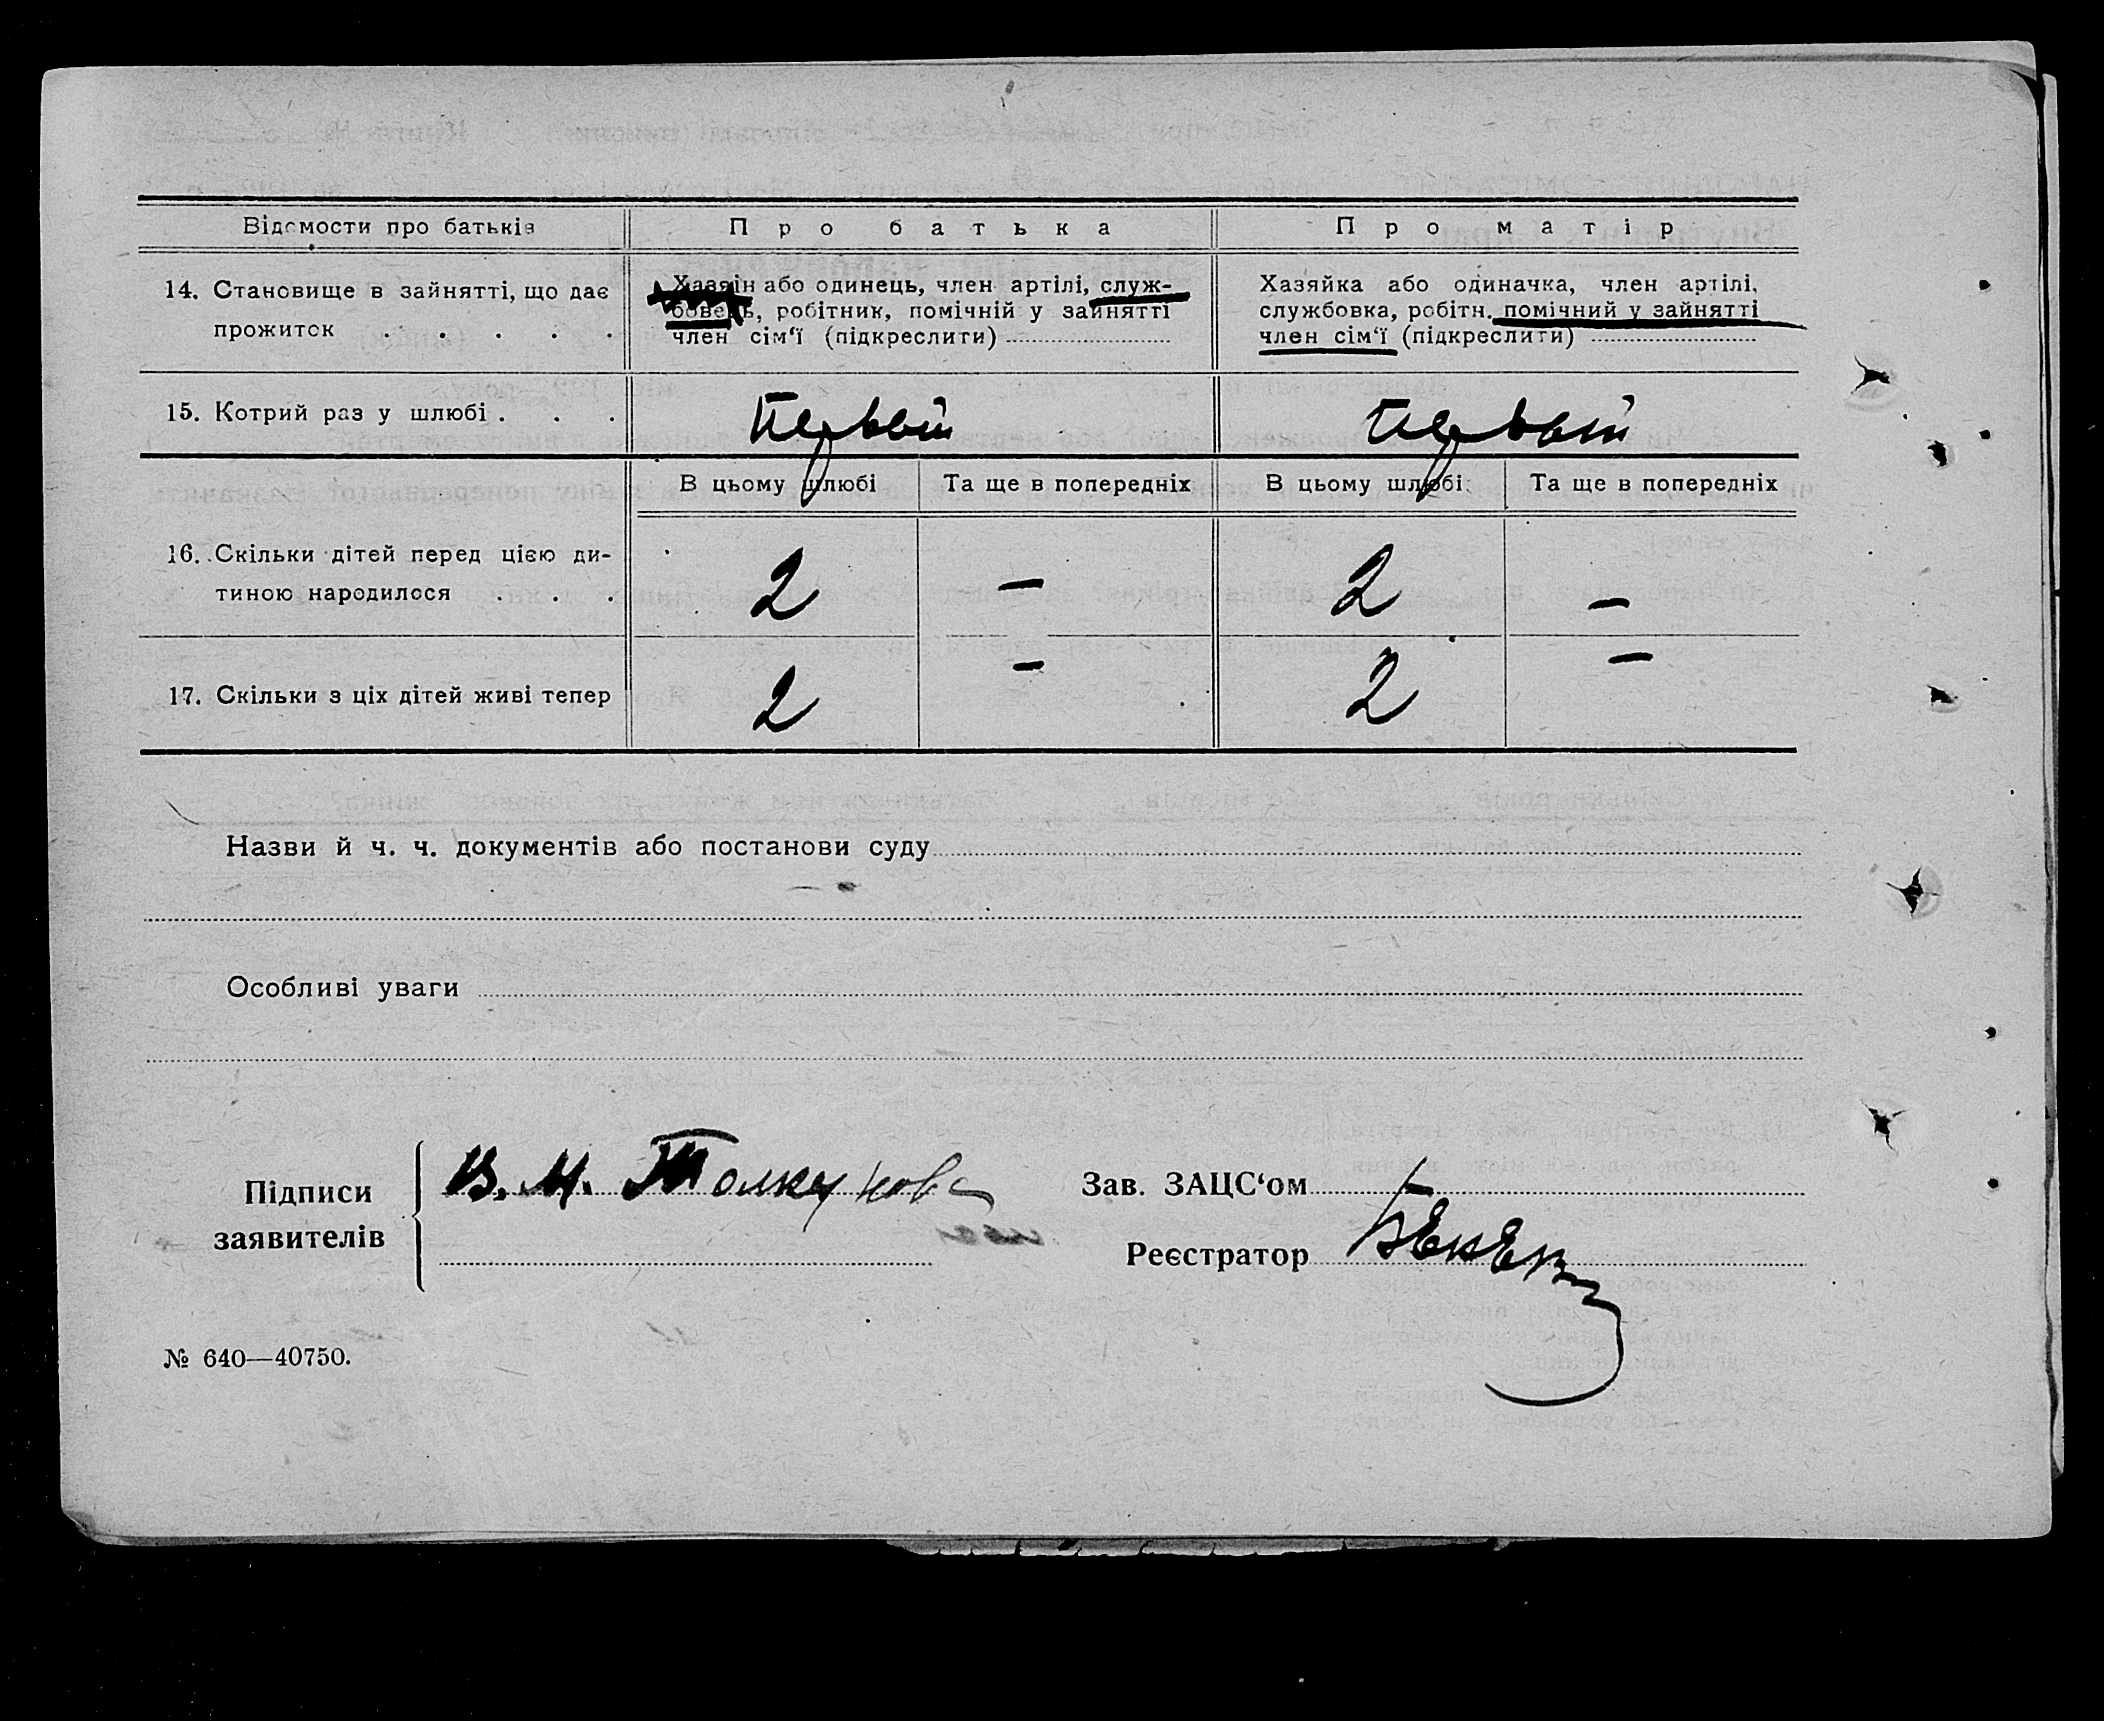 Відомости про батьків
Про батька
Про матір
14. Становище в зайнятті, що дає
прожиток . . . . .
Хазяїн або одинець, член артілі, служ-
бовець, робітник, помічній у зайнятті
член сім‘ї (підкреслити)
Хазяйка або одиначка, член артілі,
службовка, робітн. помічний у зайнятті
член сім‘ї (підкреслити)
15. Котрий раз у шлюбі . . .
Первый
Первый
В цьому шлюбі
Та ще в попередніх
В цьому шлюбі
Та ще в попередніх
16. Скільки дітей перед цією ди-
тиною народилося . . .
2
–
2
–
17. Скільки з ціх дітей живі тепер
2
–
2
–
Назви й ч. ч. документів або постанови суду
Особливі уваги
Підписи
заявителів
В. М. Толкунова
Зав. ЗАЦС‘ом
Реєстратор
№ 640—40750.